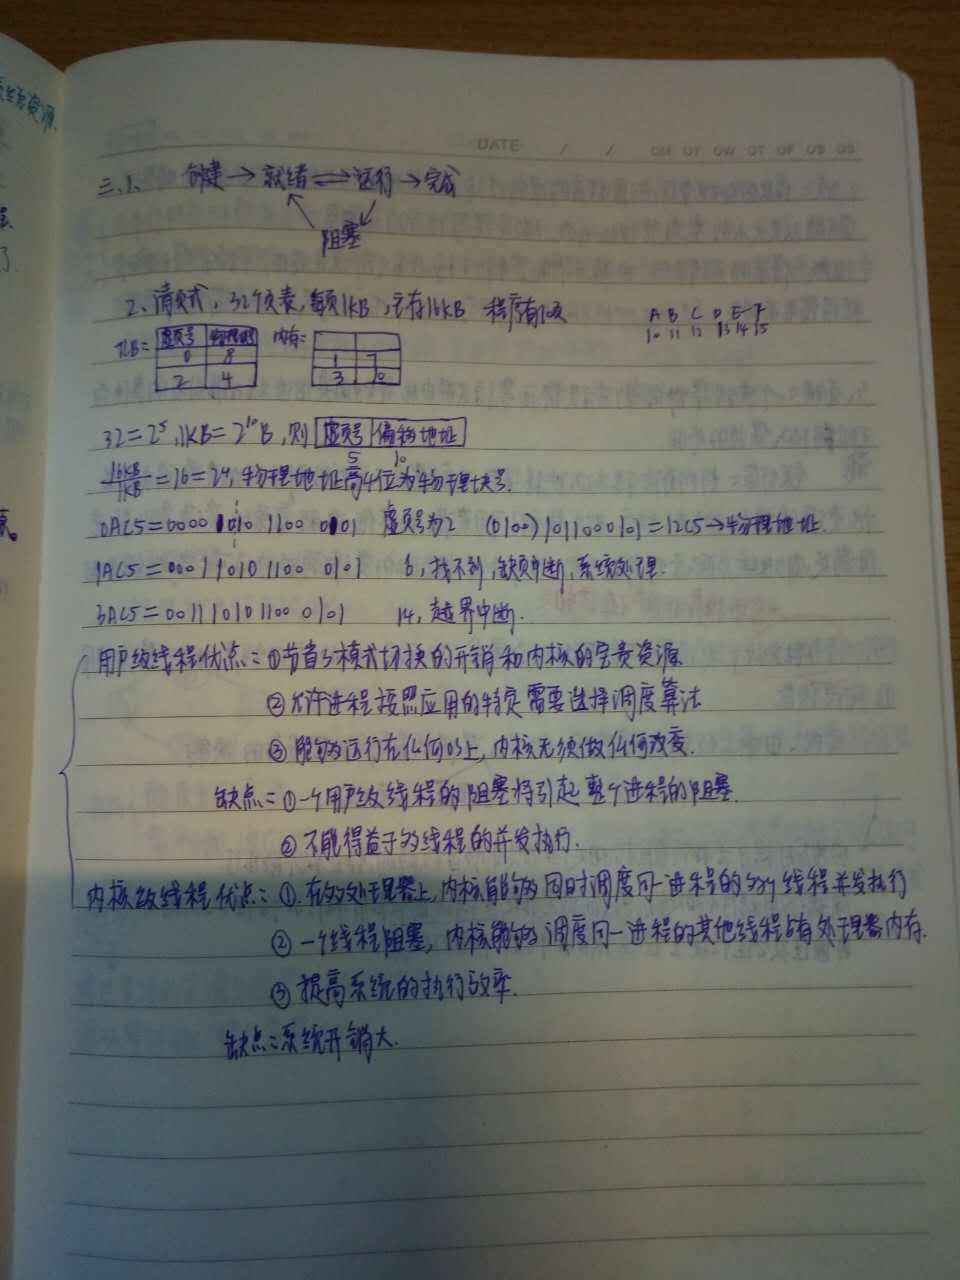 DATE / /
三、1、 创建 → 就绪 ⇌ 运行 → 完成
阻塞
2、请页式, 32个页表, 每页1KB, 主存16KB 程序有10页
A B C D E F
10 11 12 13 14 15
TLB= 虚页号 内存:
0 8 1 7
2 4 3 10
32=2⁵, 1KB=2¹⁰B, 则 虚页号 偏移地址
5 10
16KB/1KB=16=2⁴, 物理地址高4位为物理块号.
0AC5=0000 1010 1100 0101 虚页号为2 (0100)1011000101=12C5→物理地址
1AC5=0001 1010 1100 0101 6, 找不到, 缺页中断, 系统处理.
3AC5=0011 1010 1100 0101 14, 越界中断.
用户级线程优点: ①节省了模式切换的开销和内核的宝贵资源
②允许进程按照应用的特定需要选择调度算法
③能够运行在任何OS上, 内核无须做任何改变.
缺点: ①一个用户级线程的阻塞将引起整个进程的阻塞.
②不能得益于多线程的并发执行.
内核级线程优点: ①.在多处理器上, 内核能够同时调度同一进程的多个线程并发执行
②一个线程阻塞, 内核能够调度同一进程的其他线程占有处理器内存.
③提高系统的执行效率.
缺点: 系统开销大.